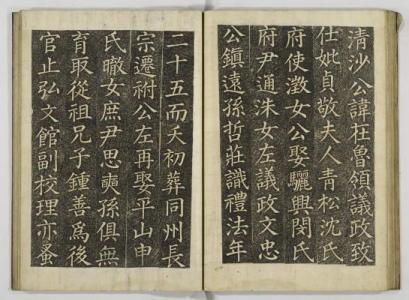 清沙公諱在魯領議政致
仕妣貞敬夫人青松沈氏
府使澂女公娶驪興閔氏
府尹通洙女左議政文忠
公鎮遠孫哲莊識禮法年
二十五而夭初葬同州長
宗遷祔公左再娶平山申
氏㬚女庶尹思奭孫俱無
育取從祖兄子鍾善為後
官止弘文館副校理亦蚤